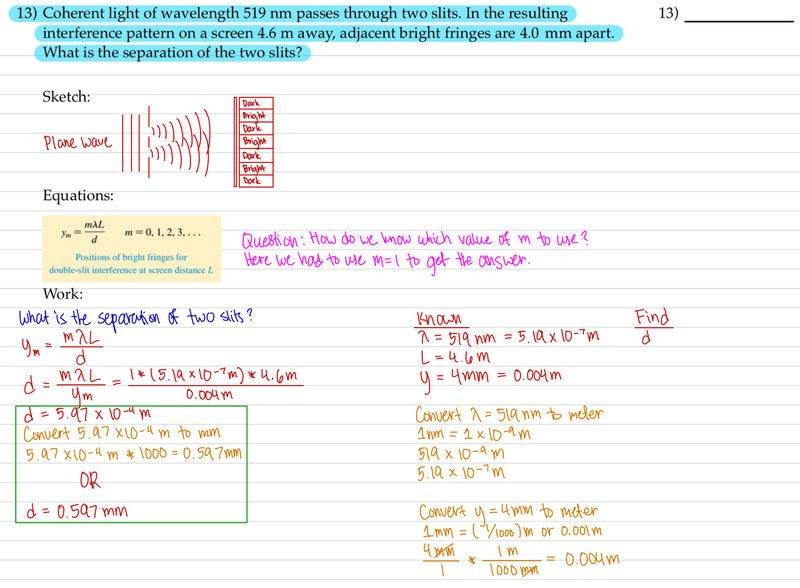 13) Coherent light of wavelength 519 nm passes through two slits. In the resulting
interference pattern on a screen 4.6 m away, adjacent bright fringes are 4.0 mm apart.
What is the separation of the two slits?
13)
Sketch:
Plane wave
Dark
Bright
Dark
Bright
Dark
Bright
Dark
Equations:
yₘ = mλL/d m = 0, 1, 2, 3, . . .
Positions of bright fringes for
double-slit interference at screen distance L
Question: How do we know which value of m to use?
Here we had to use m=1 to get the answer.
Work:
What is the separation of two slits?
yₘ = mλL/d
d = mλL/yₘ = 1*(5.19 x 10⁻⁷m)*4.6m/0.004m
d = 5.97 x 10⁻⁴ m
Convert 5.97 x10⁻⁴ m to mm
5.97 x10⁻⁴ m * 1000 = 0.597mm
OR
d = 0.597mm
Known
λ = 519 nm = 5.19 x 10⁻⁷m
L = 4.6m
y = 4mm = 0.004m
Find
d
Convert λ = 519nm to meter
1nm = 1 x 10⁻⁹m
519 x 10⁻⁹m
5.19 x 10⁻⁷m
Convert y = 4mm to meter
1mm = (1/1000)m or 0.001m
4mm/1 * 1m/1000mm = 0.004m